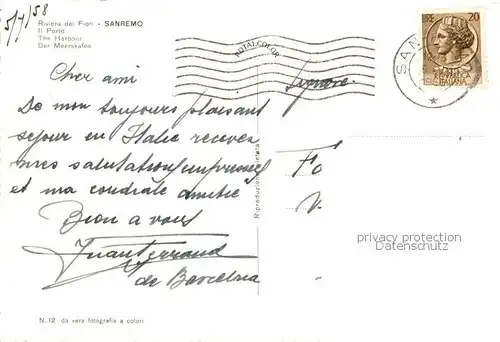 5/4/58
Riviera dei Fiori - SANREMO
Il Porto
The Harbour
Der Meershafen
ROTALCOLOR
LIRE 20
REPVBBLICA
ITALIANA
SAN
Cher ami
De mon toujours plaisant
sejour en Italie recevez
mes salutations
et ma cordiale amitié
Bien a vous
de Barcelona
Riproduzione vietata
privacy protection
Datenschutz
N. 12 da vera fotografia a colori